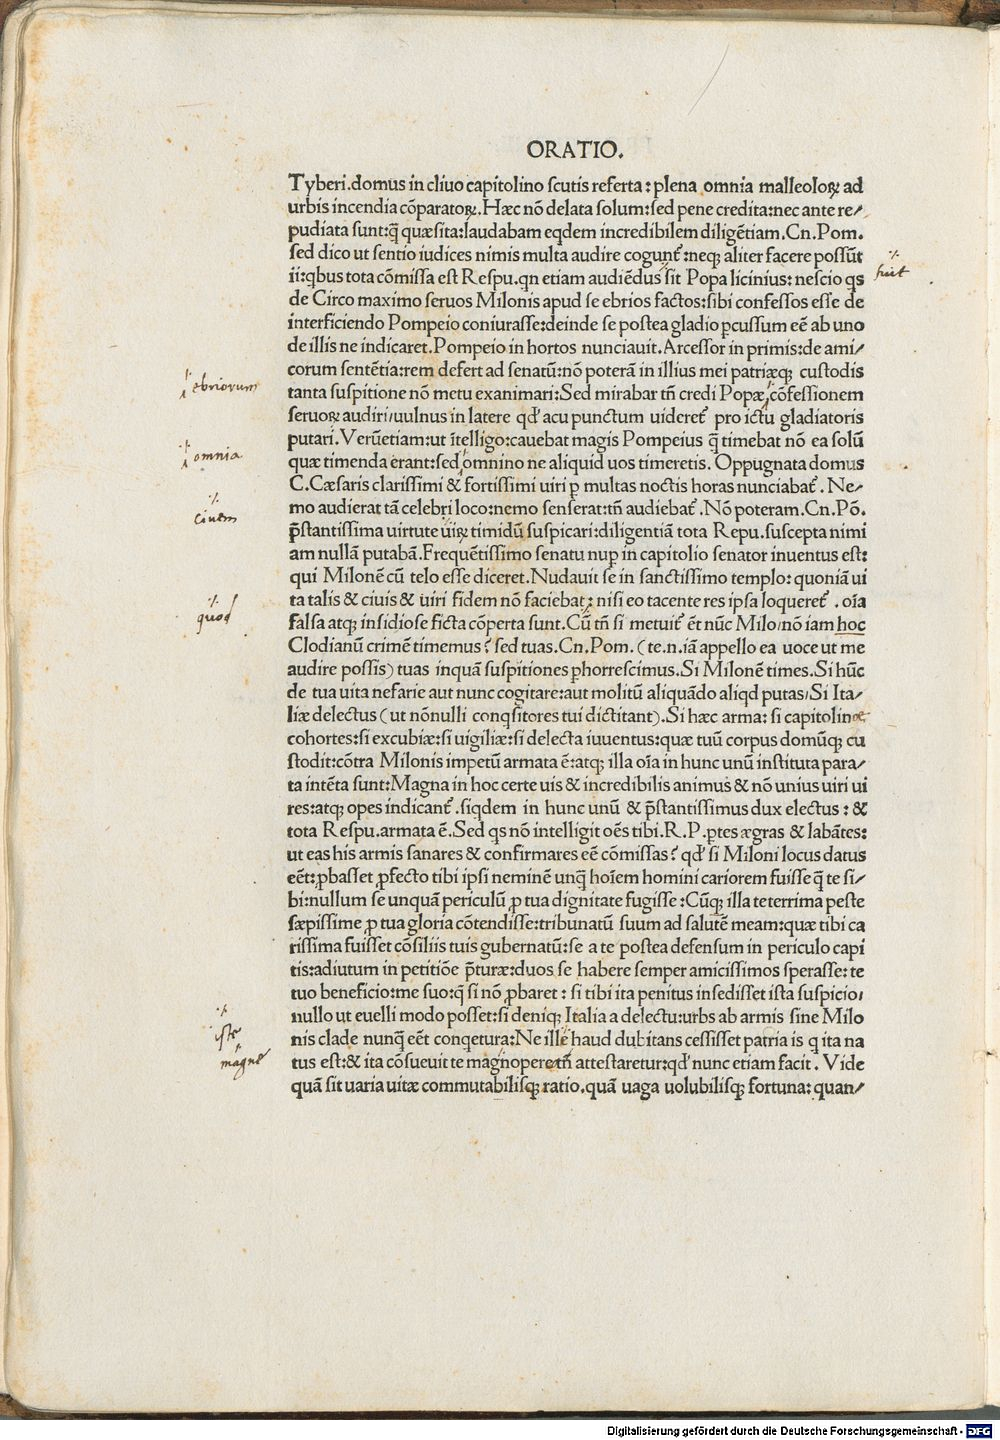 ORATIO.
Tyberi.domus in cliuo capitolino scutis referta: plena omnia malleoloꝝ ad
urbis incendia cõparatoꝝ.Hæc nõ delata solum:sed pene credita:nec ante re⸗
pudiata sunt:q̃ quæsita:laudabam eqdem incredibilem diligẽtiam.Cn.Pom.
sed dico ut sentio iudices nimis multa audire cogunt᷑:neqꝫ aliter facere possũt
ii:qbus tota cõmissa est Respu.qn etiam audiẽdus sit Popa licinius: nescio qs
fuit
de Circo maximo seruos Milonis apud se ebrios factos:sibi confessos esse de
interficiendo Pompeio coniurasse:deinde se postea gladio ꝑcussum eẽ ab uno
de illis ne indicaret.Pompeio in hortos nunciauit.Arcessor in primis:de ami⸗
corum sentẽtia:rem defert ad senatũ:nõ poterã in illius mei patriæqꝫ custodis
ebriorum
tanta suspitione nõ metu exanimari:Sed mirabar tñ credi Popæ cõfessionem
seruoꝝ audiri/uulnus in latere qd' acu punctum uideret᷑ pro ictu gladiatoris
putari.Verũetiam:ut ĩtelligo:cauebat magis Pompeius q̃ timebat nõ ea solũ
omnia
quæ timenda erant:sed omnino ne aliquid uos timeretis. Oppugnata domus
C.Cæsaris clarissimi & fortissimi uiri ꝑ multas noctis horas nunciabat᷑. Ne⸗
mo audierat tã celebri loco:nemo senserat:tñ audiebat᷑. Nõ poteram.Cn.Põ.
ciuem
p̃stantissima virtute uiꝝ timidũ suspicari:diligentiã tota Repu.suscepta nimi
am nullã putabã.Frequẽtissimo senatu nuꝑ in capitolio senator inuentus est:
qui Milonẽ cũ telo esse diceret.Nudauit se in sanctissimo templo: quoniã ui
ta talis & ciuis & uiri fidem nõ faciebat: nisi eo tacente res ipsa loqueret᷑. oĩa
quod
falsa atqꝫ insidiose ficta cõperta sunt.Cũ tñ si metuit᷑ ẽt nũc Milo/nõ iam hoc
Clodianũ crimẽ timemus? sed tuas.Cn.Pom.(te.n.iã appello ea uoce ut me
audire possis) tuas inquã suspitiones ꝑhorrescimus.Si Milonẽ times.Si hũc
de tua uita nefarie aut nunc cogitare:aut molitũ aliquãdo aliqd putas/Si Ita⸗
liæ delectus (ut nõnulli conqsitores tui dictitant).Si hæc arma: si capitolinæ
cohortes:si excubiæ:si uigiliæ:si delecta iuuentus:quæ tuũ corpus domũqꝫ cu
stodit:cõtra Milonis impetũ armata ẽ:atqꝫ illa oĩa in hunc unũ instituta para⸗
ta intẽta sunt:Magna in hoc certe uis & incredibilis animus & nõ unius uiri ui
res:atqꝫ opes indicant᷑.siqdem in hunc unũ & p̃stantissimus dux electus : &
tota Respu.armata ẽ.Sed qs nõ intelligit oẽs tibi.R.P.ꝑtes ægras & labãtes:
ut eas his armis sanares & confirmares eẽ cõmissas? qd' si Miloni locus datus
eẽt:ꝓbasset ꝓfecto tibi ipsi neminẽ unq̃ hoĩem homini cariorem fuisse q̃ te si⸗
bi:nullum se unquã periculũ ꝓ tua dignitate fugisse:Cũqꝫ illa teterrima peste
sæpissime ꝓ tua gloria cõtendisse:tribunatũ suum ad salutẽ meam:quæ tibi ca
rissima fuisset cõsiliis tuis gubernatũ:se a te postea defensum in periculo capi
tis:adiutum in petitiõe p̃turæ:duos se habere semper amicissimos sperasse: te
tuo beneficio:me suo:q̃ si nõ ꝓbaret : si tibi ita penitus insedisset ista suspicio/
nullo ut euelli modo posset:si deniqꝫ Italia a delectu:urbs ab armis sine Milo
iste
nis clade nunq̃ eẽt conqetura:Ne illẽ haud dubitans cessisset patria is q ita na
magne
tus est:& ita cõsueuit te magnopere tñ attestaretur:qd' nunc etiam facit. Vide
quã sit uaria uitæ commutabilisqꝫ ratio.quã uaga uolubilisqꝫ fortuna: quan⸗
Digitalisierung gefördert durch die Deutsche Forschungsgemeinschaft - DFG